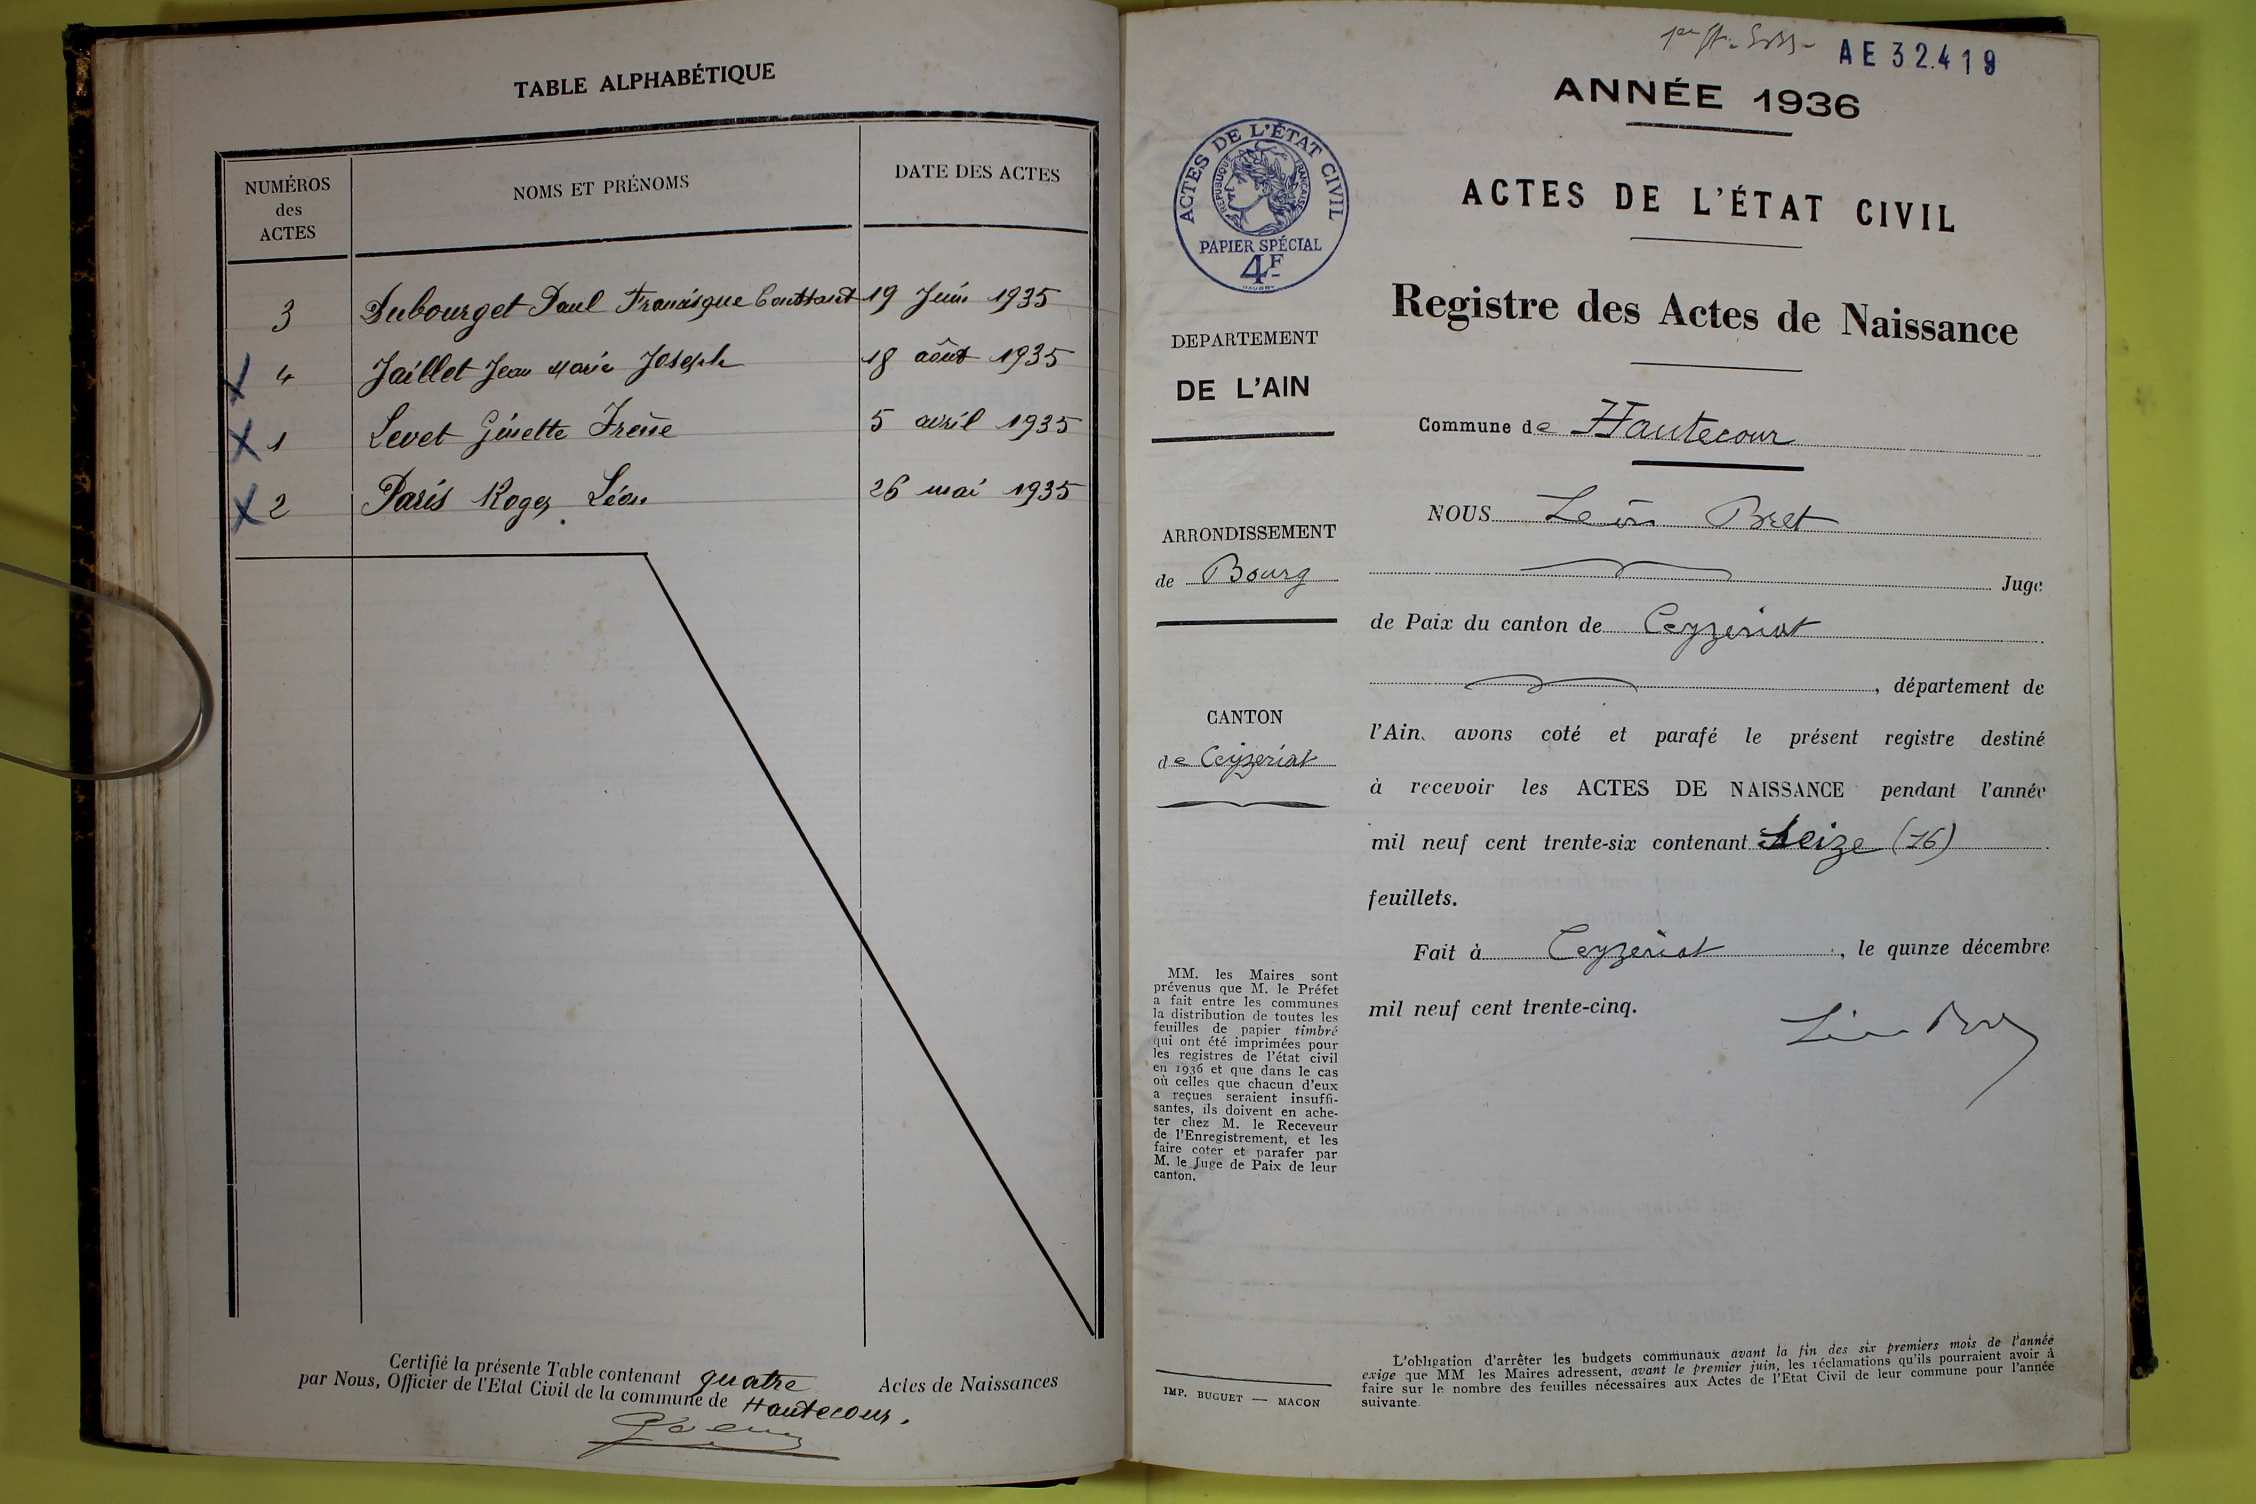 TABLE ALPHABÉTIQUE
NUMÉROS
des
ACTES
NOMS ET PRÉNOMS
DATE DES ACTES
3 Dubourget Paul Francisque Constant 19 Juin 1935
X 4 Jaillet Jean Marie Joseph 18 août 1935
X 1 Levet Ginette Irène 5 avril 1935
X 2 Paris Roger Léon 26 mai 1935
Certifié la présente Table contenant quatre Actes de Naissances
par Nous, Officier de l'Etat Civil de la commune de Hautecour.
AE 32.419
ANNÉE 1936
ACTES DE L'ÉTAT CIVIL
RÉPUBLIQUE FRANÇAISE
PAPIER SPÉCIAL
4F
DEPARTEMENT
DE L'AIN
ARRONDISSEMENT
de Bourg
CANTON
de Ceyzeriat
MM. les Maires sont
prévenus que M. le Préfet
a fait entre les communes
la distribution de toutes les
feuilles de papier timbré
qui ont été imprimées pour
les registres de l'état civil
en 1936 et que dans le cas
où celles que chacun d'eux
a reçues seraient insuffi-
santes, ils doivent en ache-
ter chez M. le Receveur
de l'Enregistrement, et les
faire coter et parafer par
M. le Juge de Paix de leur
canton.
IMP. BUGUET — MACON
ACTES DE L'ÉTAT CIVIL
Registre des Actes de Naissance
Commune de Hautecour
NOUS Léon Bret
Juge
de Paix du canton de Ceyzeriat
, département de
l'Ain, avons coté et parafé le présent registre destiné
à recevoir les ACTES DE NAISSANCE pendant l'année
mil neuf cent trente-six contenant Seize (16)
feuillets.
Fait à Ceyzeriat, le quinze décembre
mil neuf cent trente-cinq.
L'obligation d'arrêter les budgets communaux avant la fin des six premiers mois de l'année
exige que MM les Maires adressent, avant le premier juin, les réclamations qu'ils pourraient avoir à
faire sur le nombre des feuilles nécessaires aux Actes de l'Etat Civil de leur commune pour l'année
suivante.